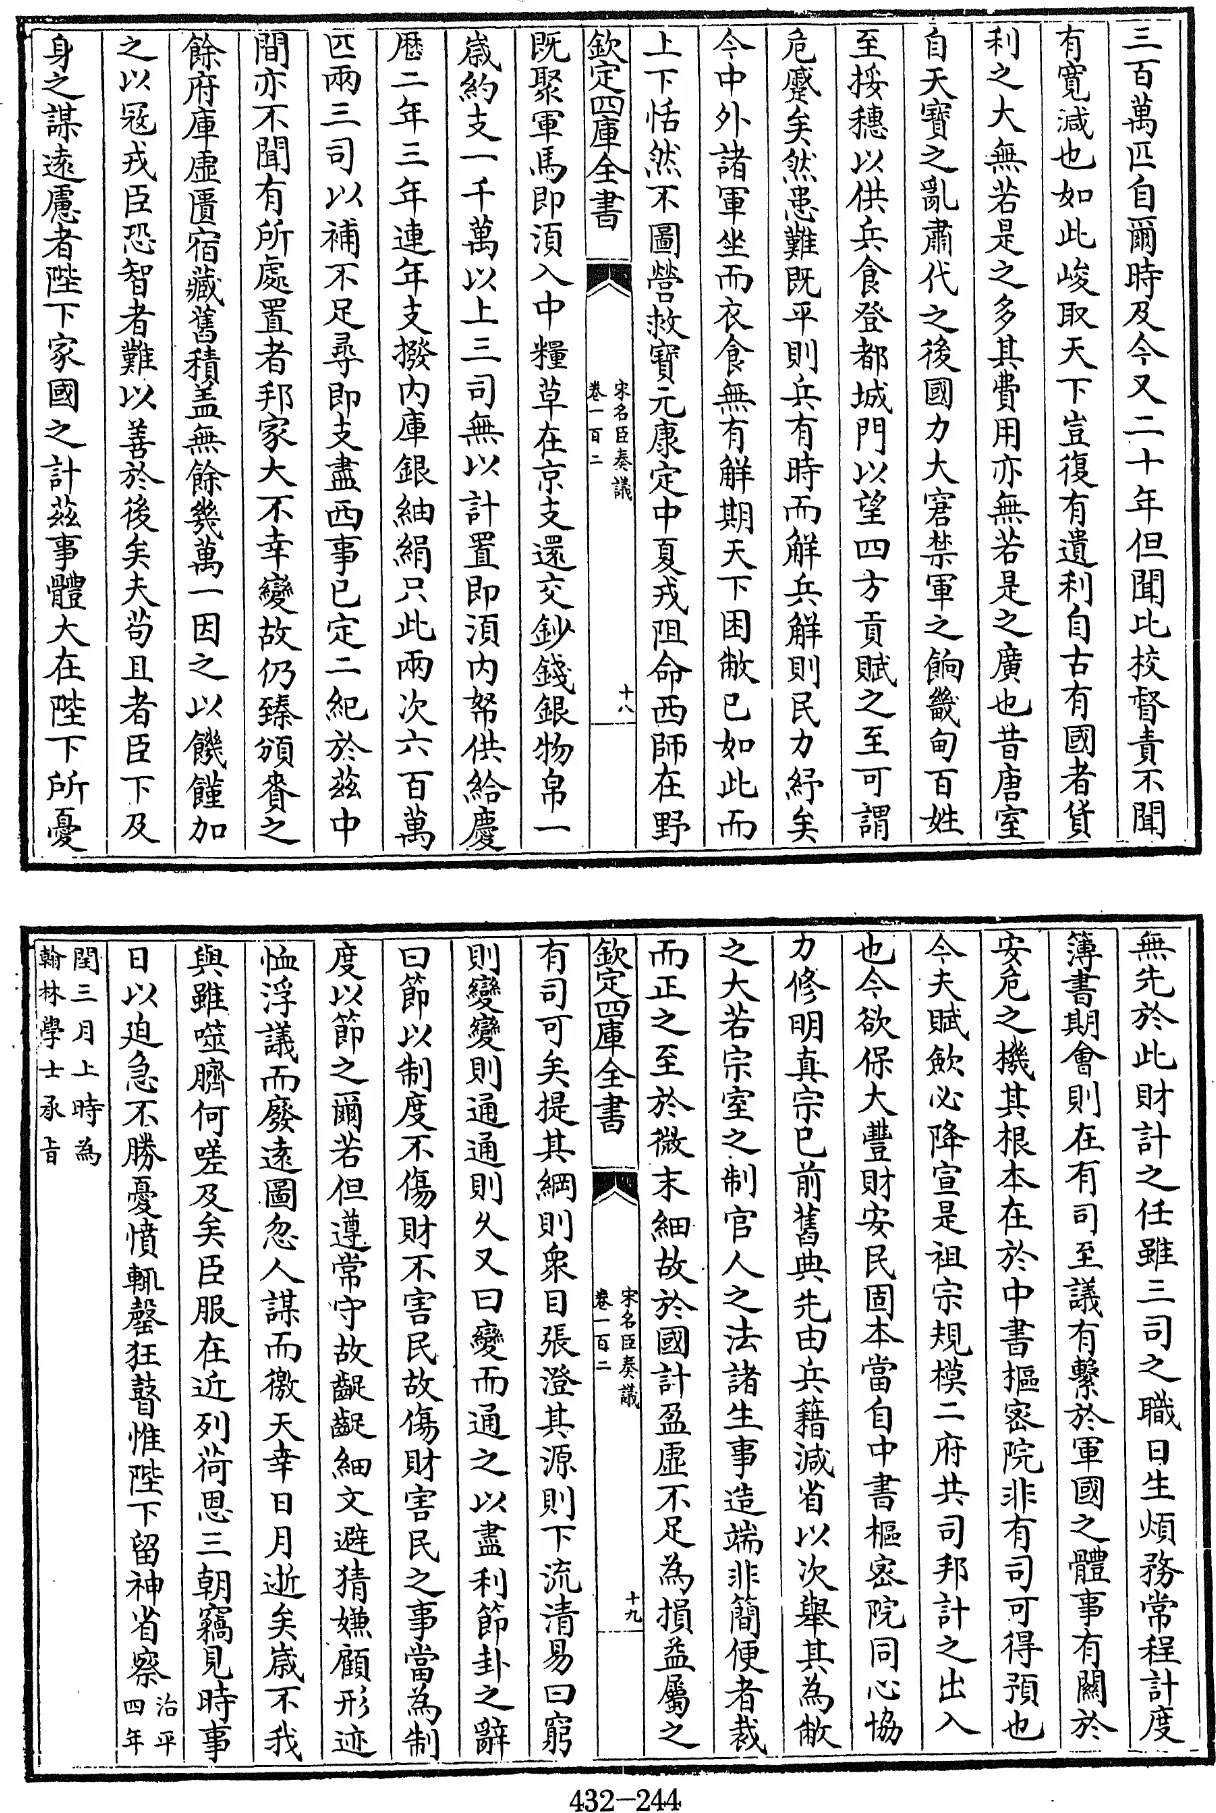 三百萬匹自爾時及今又二十年但聞比校督責不聞
有寛減也如此峻取天下豈復有遺利自古有國者貨
利之大無若是之多其費用亦無若是之廣也昔唐室
自天寶之亂肅代之後國力大窘禁軍之餉畿甸百姓
至挼穗以供兵食登都城門以望四方貢賦之至可謂
危蹙矣然患難既平則兵有時而解兵解則民力紓矣
今中外諸軍坐而衣食無有解期天下困敝已如此而
上下恬然不圖營救寶元康定中夏戎阻命西師在野
欽定四庫全書
宋名臣奏議
卷一百二
十八
既聚軍馬即須入中糧草在京支還交鈔錢銀物帛一
歳約支一千萬以上三司無以計置即須内帑供給慶
厯二年三年連年支撥内庫銀紬絹只此兩次六百萬
匹兩三司以補不足尋即支盡西事已定二紀於兹中
間亦不聞有所處置者邦家大不幸變故仍臻頒賚之
餘府庫虛匱宿藏舊積盖無餘幾萬一因之以饑饉加
之以寇戎臣恐智者難以善於後矣夫苟且者臣下及
身之謀遠慮者陛下家國之計兹事體大在陛下所憂
無先於此財計之任雖三司之職日生煩務常程計度
簿書期會則在有司至議有繫於軍國之體事有闗於
安危之機其根本在於中書樞密院非有司可得預也
今夫賦斂必降宣是祖宗規模二府共司邦計之出入
也今欲保大豐財安民固本當自中書樞密院同心協
力修明真宗已前舊典先由兵籍減省以次舉其為敝
之大若宗室之制官人之法諸生事造端非簡便者裁
而正之至於微末細故於國計盈虛不足為損益屬之
欽定四庫全書
宋名臣奏議
卷一百二
十九
有司可矣提其綱則衆目張澄其源則下流清易曰窮
則變變則通通則久又曰變而通之以盡利節卦之辭
曰節以制度不傷財不害民故傷財害民之事當為制
度以節之爾若但遵常守故齪齪細文避猜嫌顧形迹
恤浮議而廢遠圖忽人謀而徼天幸日月逝矣歳不我
與雖噬臍何嗟及矣臣服在近列荷恩三朝竊見時事
日以迫急不勝憂憤輒罄狂瞽惟陛下留神省察治平四年
閏三月上時為
翰林學士承㫖
432-244